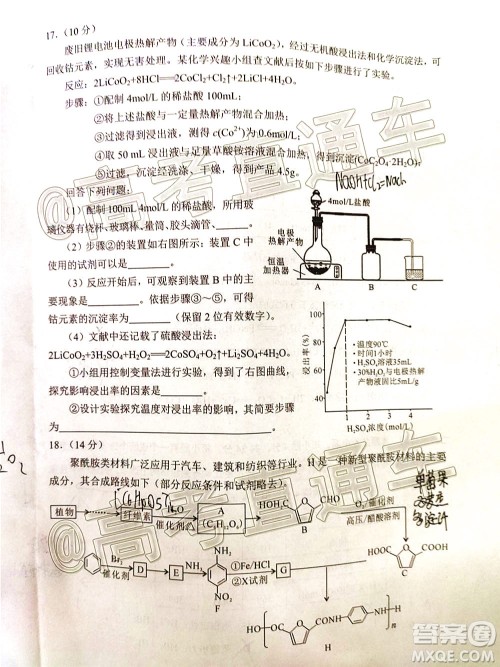 17.(10 分)
废旧锂电池电极热解产物(主要成分为 LiCoO₂),经过无机酸浸出法和化学沉淀法,可
回收钴元素,实现无害处理。某化学兴趣小组查文献后按如下步骤进行了实验。
反应:2LiCoO₂+8HCl══2CoCl₂+Cl₂↑+2LiCl+4H₂O
步骤:①配制 4mol/L 的稀盐酸 100mL;
②将上述盐酸与一定量热解产物混合加热;
③过滤得到浸出液,测得 c(Co²⁺)为 0.6mol/L;
④取 50 mL 浸出液与足量草酸铵溶液混合加热,得到沉淀(CoC₂O₄·2H₂O);
⑤过滤,沉淀经洗涤、干燥,得到产品 4.5g。
回答下列问题:
(1)配制 100mL 4mol/L 的稀盐酸,所用玻
璃仪器有烧杯、玻璃棒、量筒、胶头滴管、______。
(2)步骤②的装置如右图所示:装置 C 中
使用的试剂可以是______。
(3)反应开始后,可观察到装置 B 中的主
要现象是______。依据步骤③~⑤,可得
钴元素的沉淀率为______(保留 2 位有效数字)。
4mol/L盐酸
电极
热解产物
恒温
加热器
A
B
C
(4)文献中还记载了硫酸浸出法:
2LiCoO₂+3H₂SO₄+H₂O₂══2CoSO₄+O₂↑+Li₂SO₄+4H₂O
①小组用控制变量法进行实验,得到了右图曲线,
探究影响浸出率的因素是______。
②设计实验探究温度对浸出率的影响,其简要步骤
为______。
浸出率(%)
100
90
80
70
温度90℃
时间1小时
H₂SO₄溶液35mL
30%H₂O₂与电极热解
产物液固比5mL/g
0 1 2 3 4
H₂SO₄浓度/(mol/L)
18.(14 分)
聚酰胺类材料广泛应用于汽车、建筑和纺织等行业。H 是一种新型聚酰胺材料的主要
成分,其合成路线如下(部分反应条件和试剂略去):
植物
纤维素
催化剂
A
(C₆H₁₂O₆)
HOH₂C
O
CHO
B
O₂/催化剂
高压/醋酸溶剂
HOOC
O
COOH
C
Br
催化剂
D
E
NH₂
NO₂
F
①Fe/HCl
②X试剂
G
HO
OC
O
CO-HN
NH
H
n
H